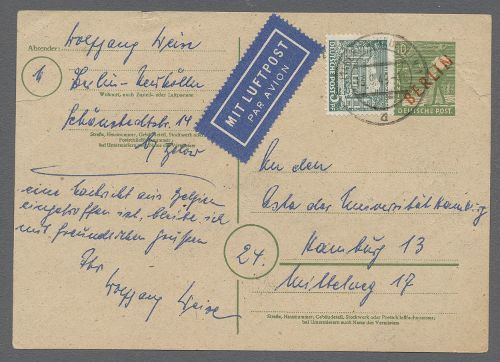 Absender: Wolfgang Weise
Berlin-Neukölln
Wohnort, auch Zustell- oder Leitpostamt
Schönstedtstr. 14
Straße, Hausnummer, Gebäudeteil, Stockwerk oder Postschließfachnummer;
bei Untermietern auch Name des Vermieters
eine Nachricht aus Belgien
eingetroffen ist, bleibe ich
mit freundlichen Grüßen
Ihr
Wolfgang Weise
MIT LUFTPOST
PAR AVION
DEUTSCHE POST
BERLIN
DEUTSCHE POST
An den
Asta der Universität Hamburg
24. Hamburg 13
Mittelweg 17
Straße, Hausnummer, Gebäudeteil, Stockwerk oder Postschließfachnummer;
bei Untermietern auch Name des Vermieters